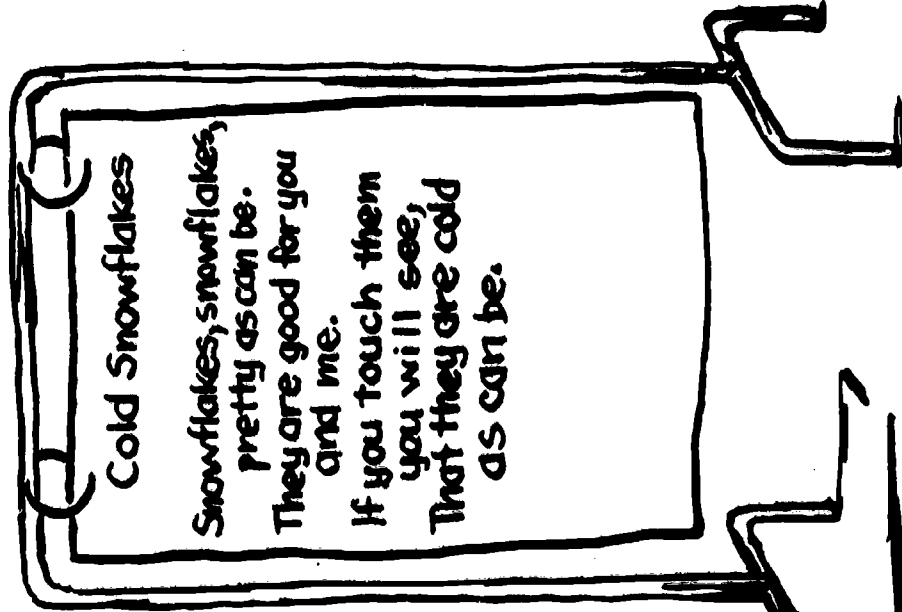 Cold Snowflakes
Snowflakes, snowflakes,
pretty as can be.
They are good for you
and me.
If you touch them
you will see,
That they are cold
as can be.